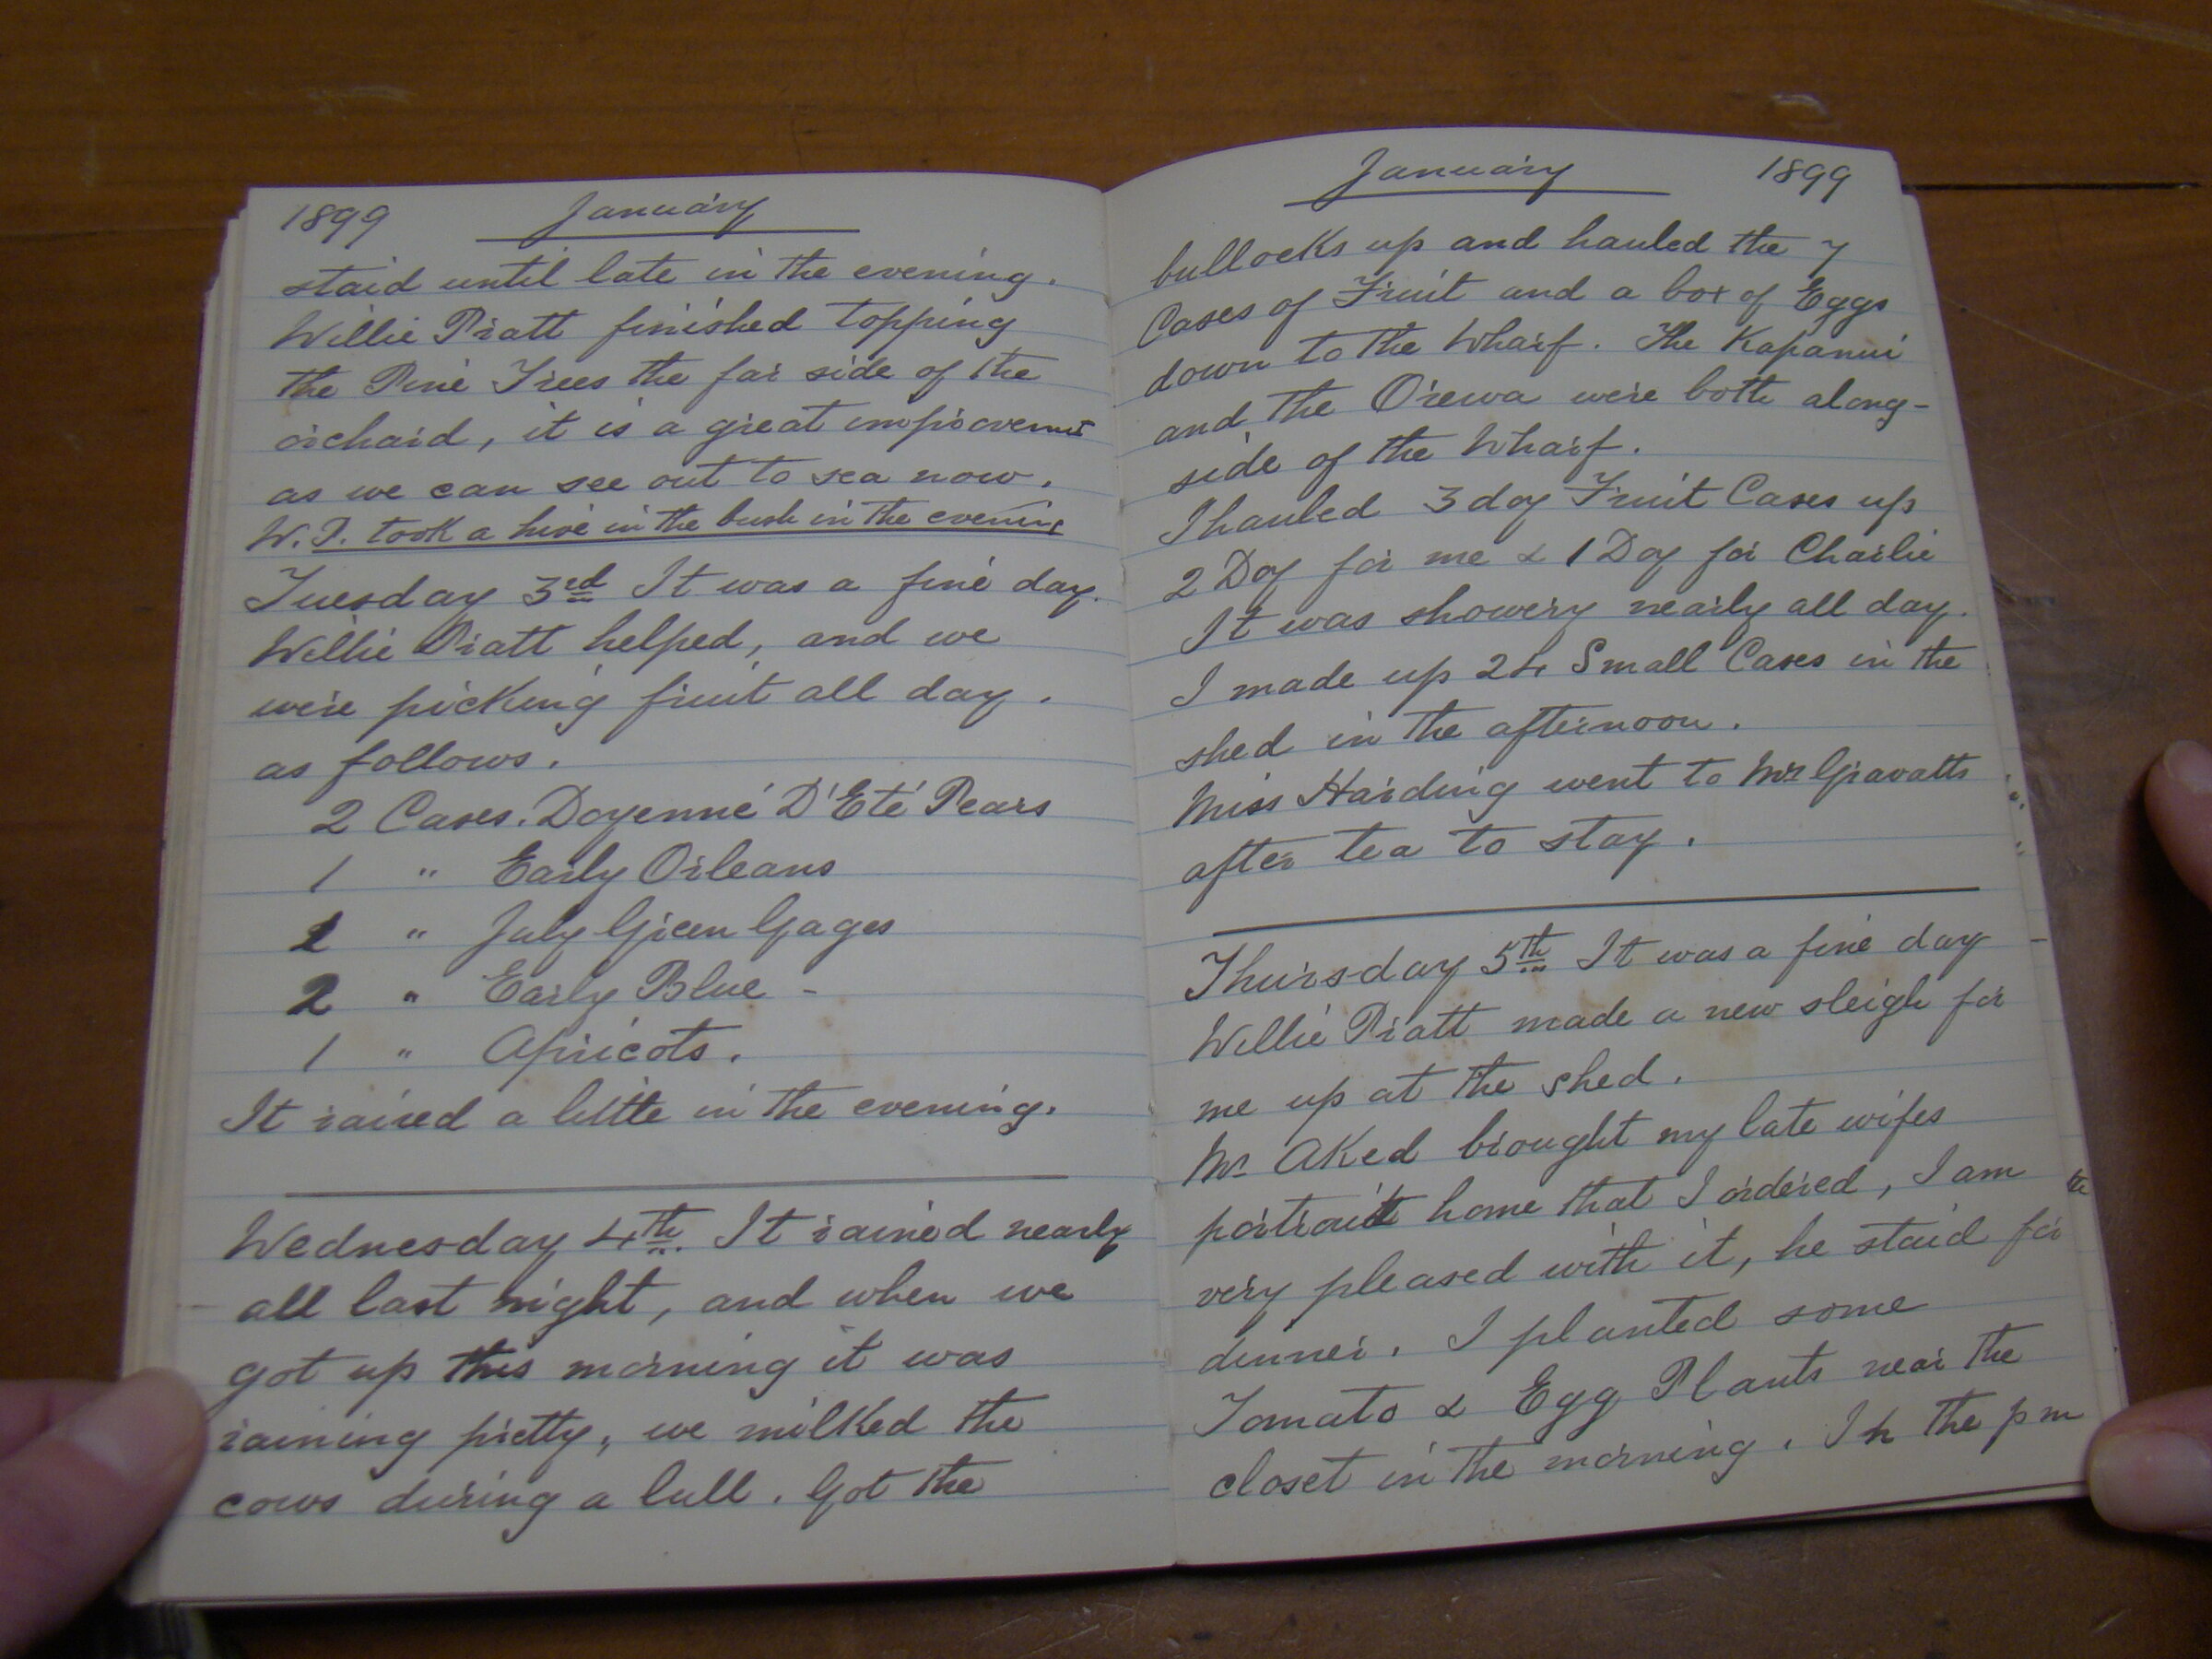 1899 January
staid until late in the evening.
Willie Pratt finished topping
the Pine Trees the far side of the
orchard, it is a great improvemnt
as we can see out to sea now.
W.P. took a hive in the bush in the evening
Tuesday 3rd It was a fine day.
Willie Pratt helped, and we
were picking fruit all day.
as follows.
2 Cases. Doyenné D'Eté Pears
1 " Early Orleans
1 " July Green Gages
2 " Early Blue -
1 " Apricots.
It rained a little in the evening.
Wednesday 4th It rained nearly
all last night, and when we
got up this morning it was
raining pretty, we milked the
cows during a lull. Got the
January 1899
bullocks up and hauled the 7
Cases of Fruit and a box of Eggs
down to the Wharf. The Kapanui
and the Orewa were both along-
side of the Wharf.
I hauled 3 doz Fruit Cases up
2 Doz for me & 1 Doz for Charlie
It was showery nearly all day.
I made up 24 Small Cases in the
shed in the afternoon.
Miss Harding went to Mr Gravatts
after tea to stay.
Thursday 5th It was a fine day
Willie Pratt made a new sleigh for
me up at the shed.
Mr Aked brought my late wifes
portrait home that I ordered, I am
very pleased with it, he staid for
dinner. I planted some
Tomato & Egg Plants near the
closet in the morning. In the pm